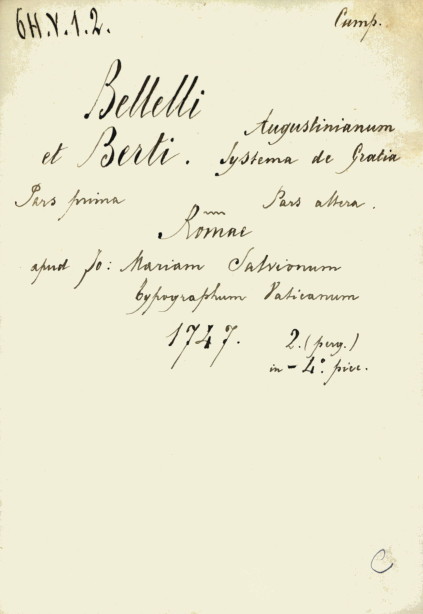 6H.V.1.2. Camp.
Bellelli
et Berti. Augustinianum
Systema de Gratia
Pars prima Pars altera.
Romae
apud Jo: Mariam Salvionum
typographum Vaticanum
1747. 2. (perg.)
in-4º. picc.
C